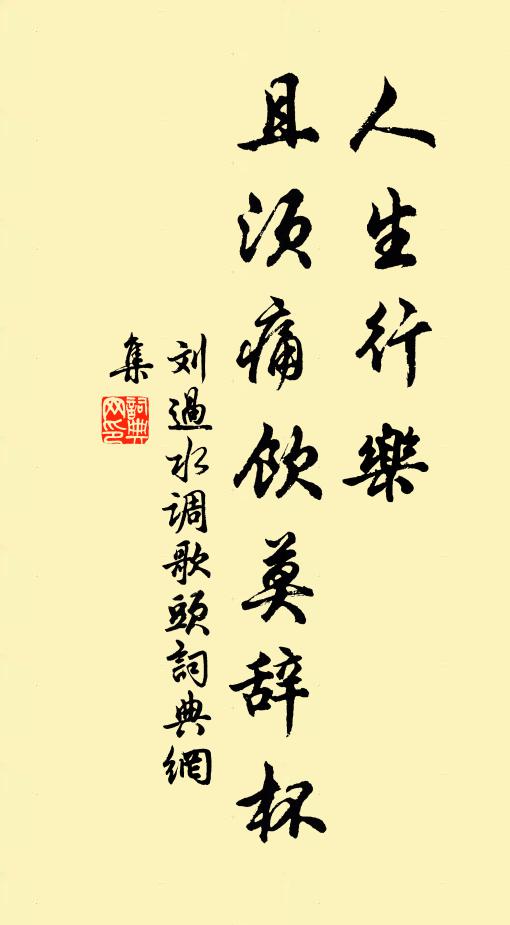 人生行樂
且须痛飲莫辞杯
刘過水调歌頭詞典網
集
詞典网印